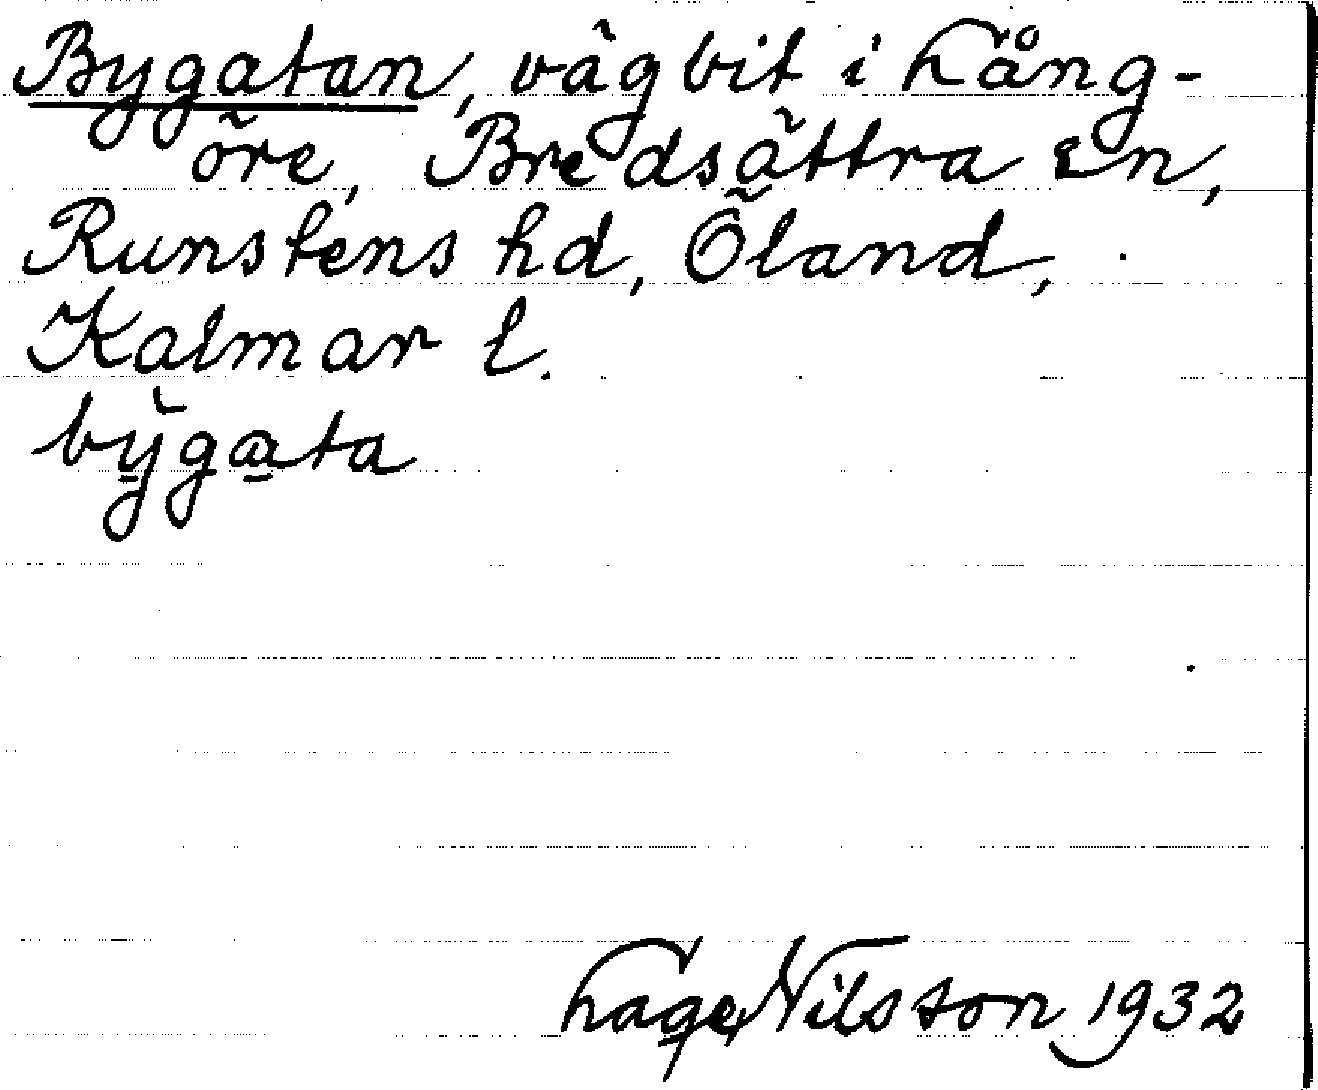 Bygatan, vägbit i Lång-
öre, Bredsättra sn,
Runstens hd, Öland,
Kalmar l.
bygata
Lage Nilsson 1932